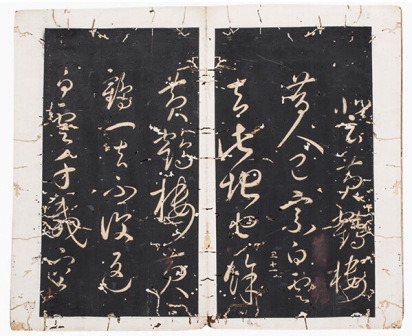 黃鶴樓
昔人已乘白雲
去此地空餘
黃鶴樓黃
鶴一去不復返
白雲千載空